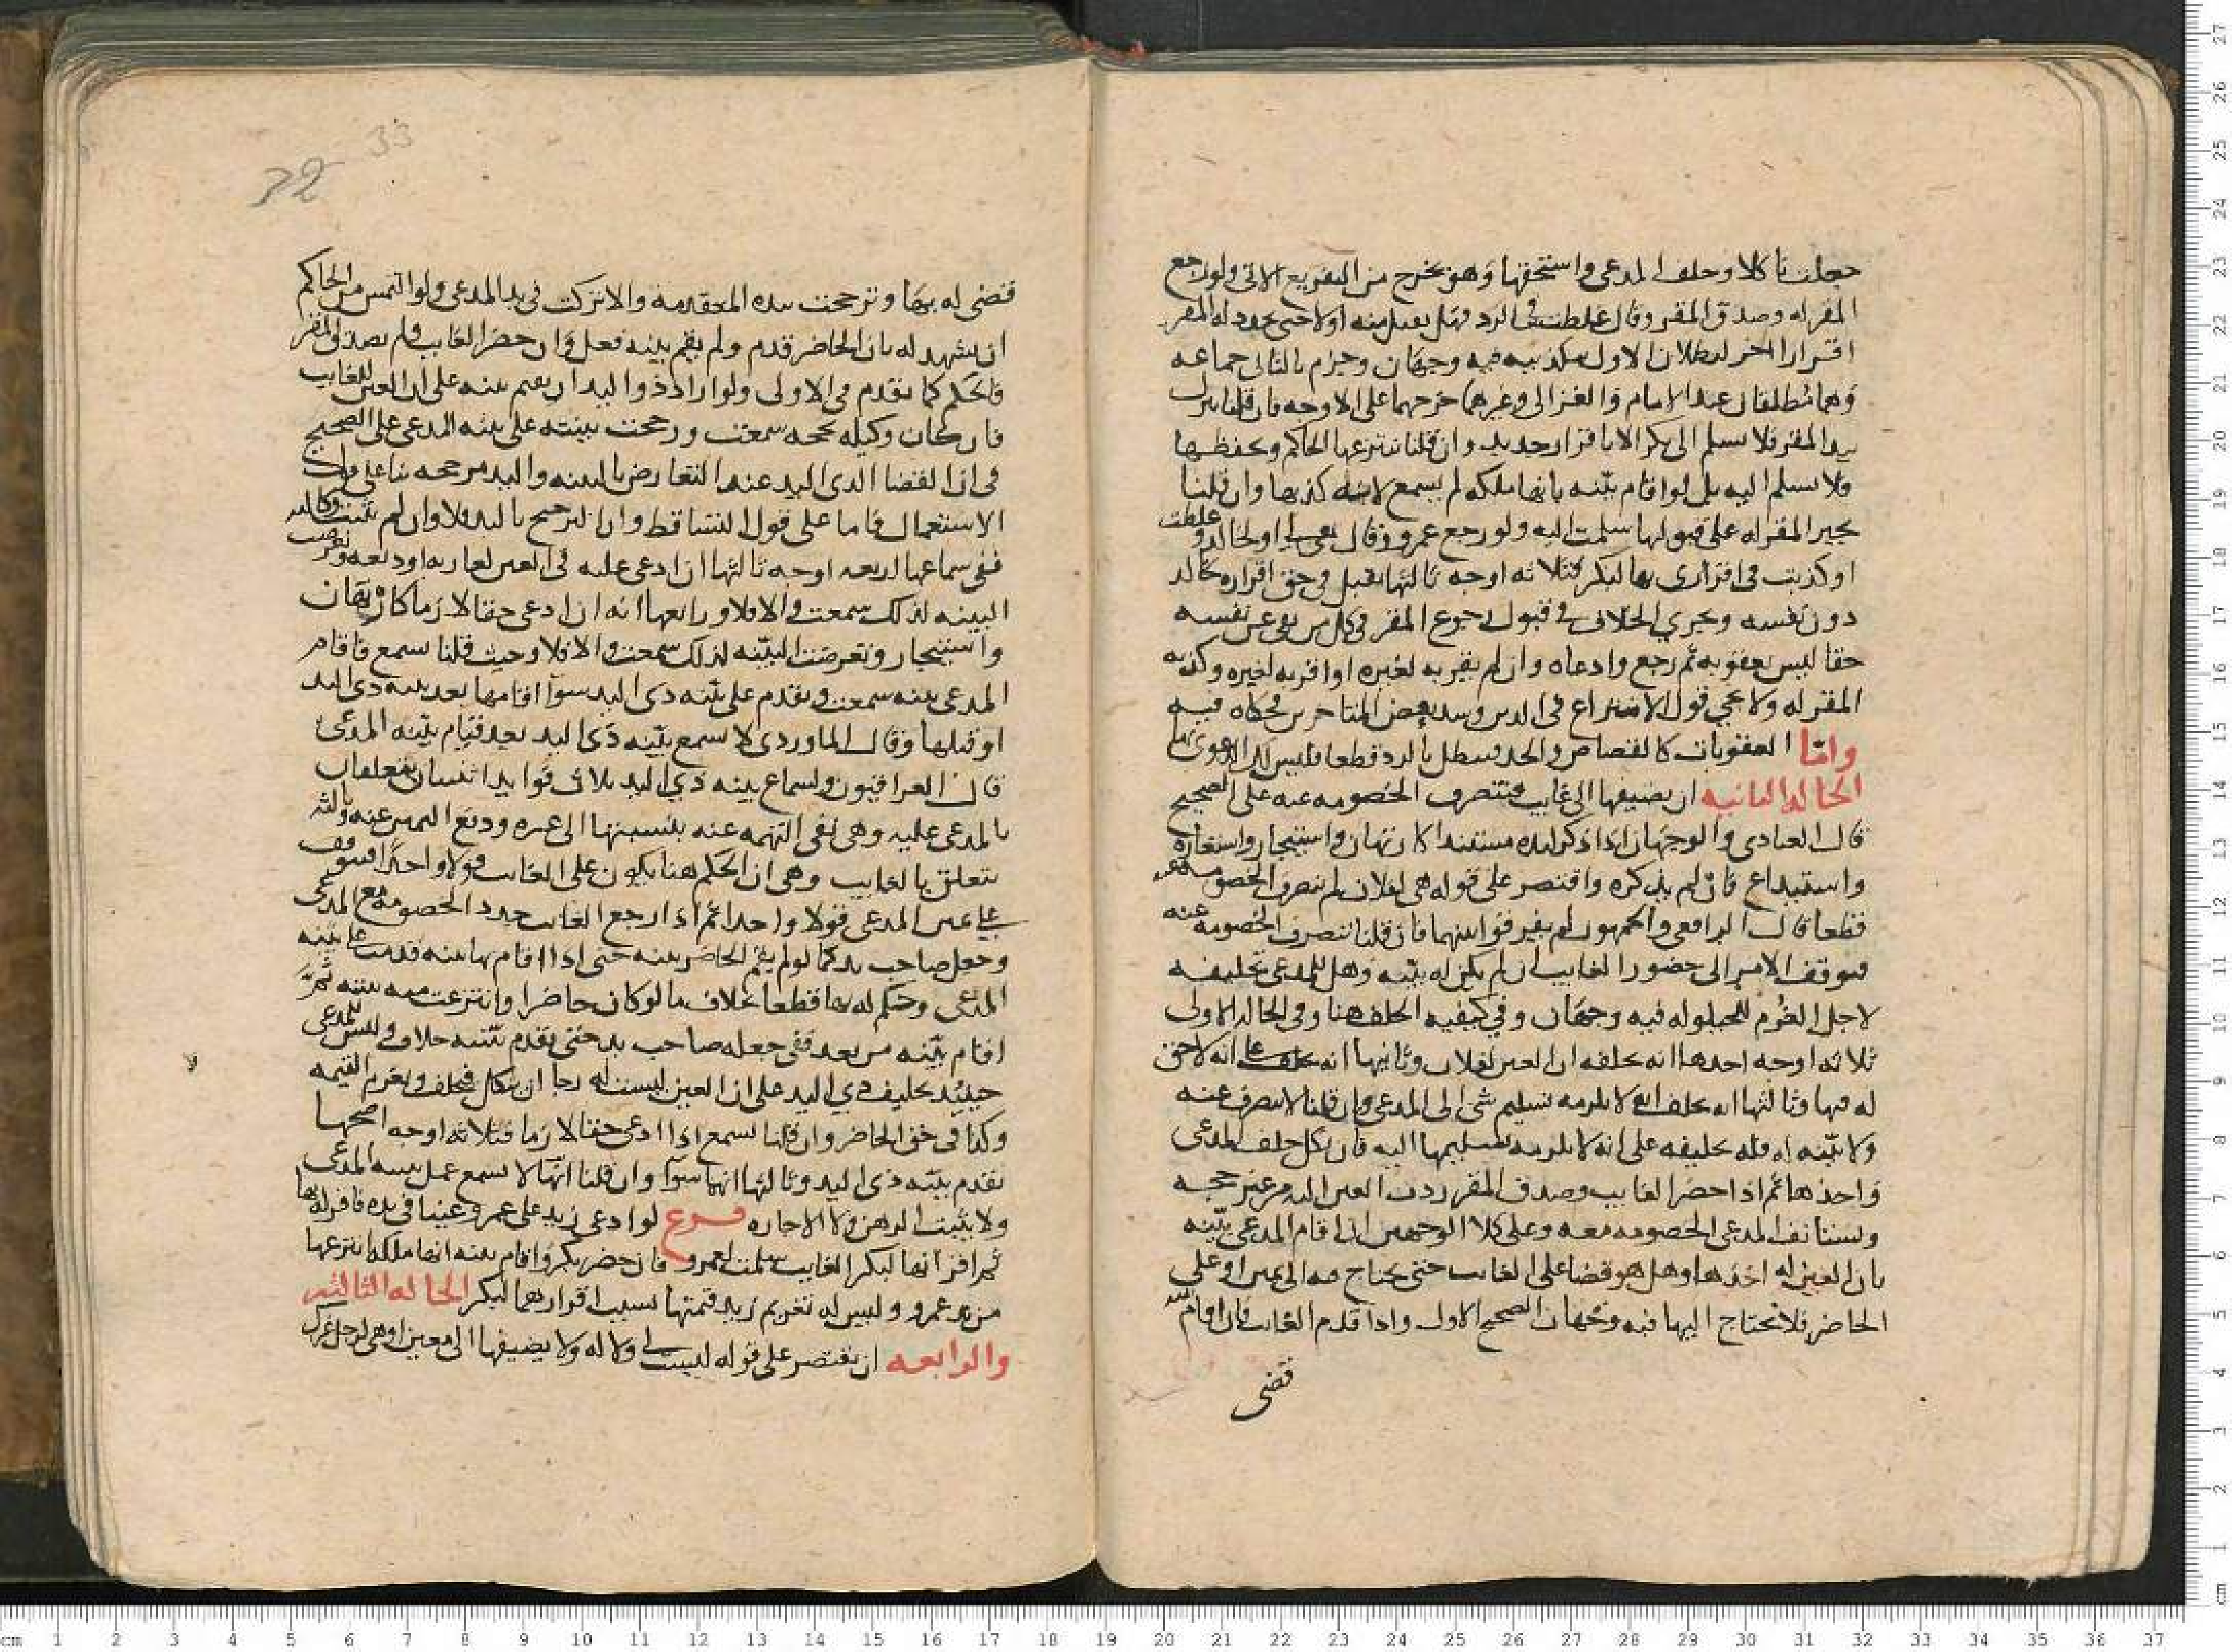 جعلناه ناكلا وحلف المدعى واستحقها وهو يخرج من التفريع الاتى ولو رجع
المقر له وصدق المقر وقال غلطت فى الرد فهل يقبل منه اولا حتى يجدد له المقر
اقرارا اخر لبطلان الاول بتكذيبه فيه وجهان وجزم بالثانى جماعه
وهما مطلقان عند الامام والغزالى وغيرهما خرجهما على الاوجه فان قلنا يترك
بيد المقر فلا يسلم الى بكر الا باقرار جديد وان قلنا ينتزعها الحاكم ويحفظها
ولا يسلم اليه بل لو اقام بينه بانها ملكه لم يسمع لانه كذبها وان قلنا
يجبر المقر له على قبولها سلمت اليه ولو رجع عمرو وقال هى لى او لخالد و غلطت
او كذبت فى اقرارى بها لبكر فثلاثه اوجه ثالثها يقبل فى حق اقراره لخالد
دون نفسه ويجرى الخلاف فى قبول رجوع المقر فى كل من نفى عن نفسه
حقا ليس بعقوبه ثم رجع وادعاه وان لم يقر به لغيره او اقر به لغيره وكذبه
المقر له ولا يجى قول الانتزاع فى الدين وبعض المتاخرين حكاه فيه
واما العقوبات كالقصاص والحد فيبطل بالرد قطعا فليس له الدعوى بها
الحاله الثانيه ان يضيفها الى غايب فتنصرف الخصومه عنه على الصحيح
قال العبادى والوجهان اذا ذكر ليده مستندا كارتهان واستيجار واستعاره
واستيداع فان لم يذكره واقتصر على قوله هى لفلان لم تنصرف الخصومه عنه
قطعا قال الرافعى والجمهور لم يفرقوا بينهما فان قلنا تنصرف الخصومه عنه
فيوقف الامر الى حضور الغايب ان لم يكن له بينه وهل للمدعى تحليفه
لاجل الغرم للحيلوله فيه وجهان وفى كيفيه الحلف هنا وفى الحاله الاولى
ثلاثه اوجه احدها انه يحلفه ان العين لفلان وثانيها انه يحلف على انه لا حق
له فيها وثالثها انه يحلف انه لا يلزمه تسليم شى الى المدعى وان قلنا لا ينصرف عنه
ولا بينه له فله تحليفه على انه لا يلزمه تسليمها اليه فان نكل حلف المدعى
واخذها ثم اذا حضر الغايب وصدق المقر ردت العين اليه من غير حجه
ويستانف المدعى الخصومه معه وعلى كلا الوجهين ان اقام المدعى بينه
بان العين له اخذها وهل هو قضا على الغايب حتى يحتاج معه الى يمين او على
الحاضر فلا يحتاج اليها فيه وجهان الصحيح الاول واذا قدم الغايب فان اقام بينه
قضى
33
32
قضى له بها وترجحت بيده المتقدمه والا تركت فى يد المدعى ولو التمس من الحاكم
ان يشهد له بان الحاضر قدم ولم يقم بينه فعل وان حضر الغايب ولم يصدق المقر
فالحكم كما تقدم فى الاولى ولو اراد ذو اليد ان يقيم بينه على ان العين للغايب
فان كان وكيله بحجه سمعت ورجحت بينته على بينه المدعى على الصحيح
فى ان القضا لذى اليد عند التعارض بالبينه واليد مرجحه بنا على قول
الاستعمال فاما على قول التساقط وان الترجيح باليد فلا وان لم تثبت وكالته
ففى سماعها اربعه اوجه ثالثها ان ادعى علقه فى العين لعاريه او وديعه وتعرضت
البينه لذلك سمعت والا فلا ورابعها انه ان ادعى حقا لازما كارتهان
واستيجار وتعرضت البينه لذلك سمعت والا فلا وحيث قلنا تسمع فاقام
المدعى بينه سمعت وتقدم على بينه ذى اليد سوا اقامها بعد بينه ذى اليد
او قبلها وقال الماوردى لا تسمع بينه ذى اليد بعد قيام بينه المدعى
قال العراقيون ولسماع بينه ذى اليد ثلاث فوايد اثنتان يتعلقان
بالمدعى عليه وهى نفى التهمه عنه بنسبتها الى غيره ودفع اليمين عنه وثالثه
تتعلق بالغايب وهى ان الحكم هنا يكون على الغايب قولا واحدا فيتوقف
على يمين المدعى قولا واحدا ثم اذا رجع الغايب جدد الخصومه مع المدعى
وجعل صاحب يد كما لو لم يقم الحاضر بينه حتى اذا اقام بها بينه قدمت على بينه
المدعى وحكم له بها قطعا بخلاف ما لو كان حاضرا وانتزعت منه ببينه ثم
اقام بينه من بعد ففى جعله صاحب يد حتى تقدم بينته خلاف وليس للمدعى
حينئذ تحليف ذى اليد على ان العين ليست له رجا ان ينكل فيحلف ويغرم القيمه
وكذا فى حق الحاضر وان قلنا تسمع اذا ادعى حقا لازما فثلاثه اوجه اصحها
تقدم بينه ذى اليد وثالثها انهما سوا وان قلنا انها لا تسمع عمل ببينه المدعى
ولا يثبت الرهن ولا الاجاره فرع لو ادعى زيد على عمرو عينا فى يده فاقر له بها
ثم اقر انها لبكر الغايب سلمت لعمرو فان حضر بكر واقام بينه انها ملكه انتزعها
من يد عمرو وليس له تغريم زيد قيمتها بسبب اقرارهما لبكر الحاله الثالثه
والرابعه ان يقتصر على قوله ليست لى ولا له ولا يضيفها الى معين او هى لرجل غيرك
لا